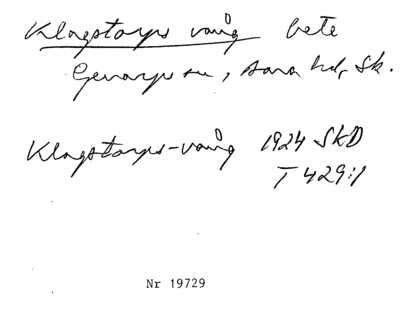 Klagstorps vång bete
Genarps sn, Bara hd, Sk.
Klagstorps-vång 1924 SkD
T 429:1
Nr 19729